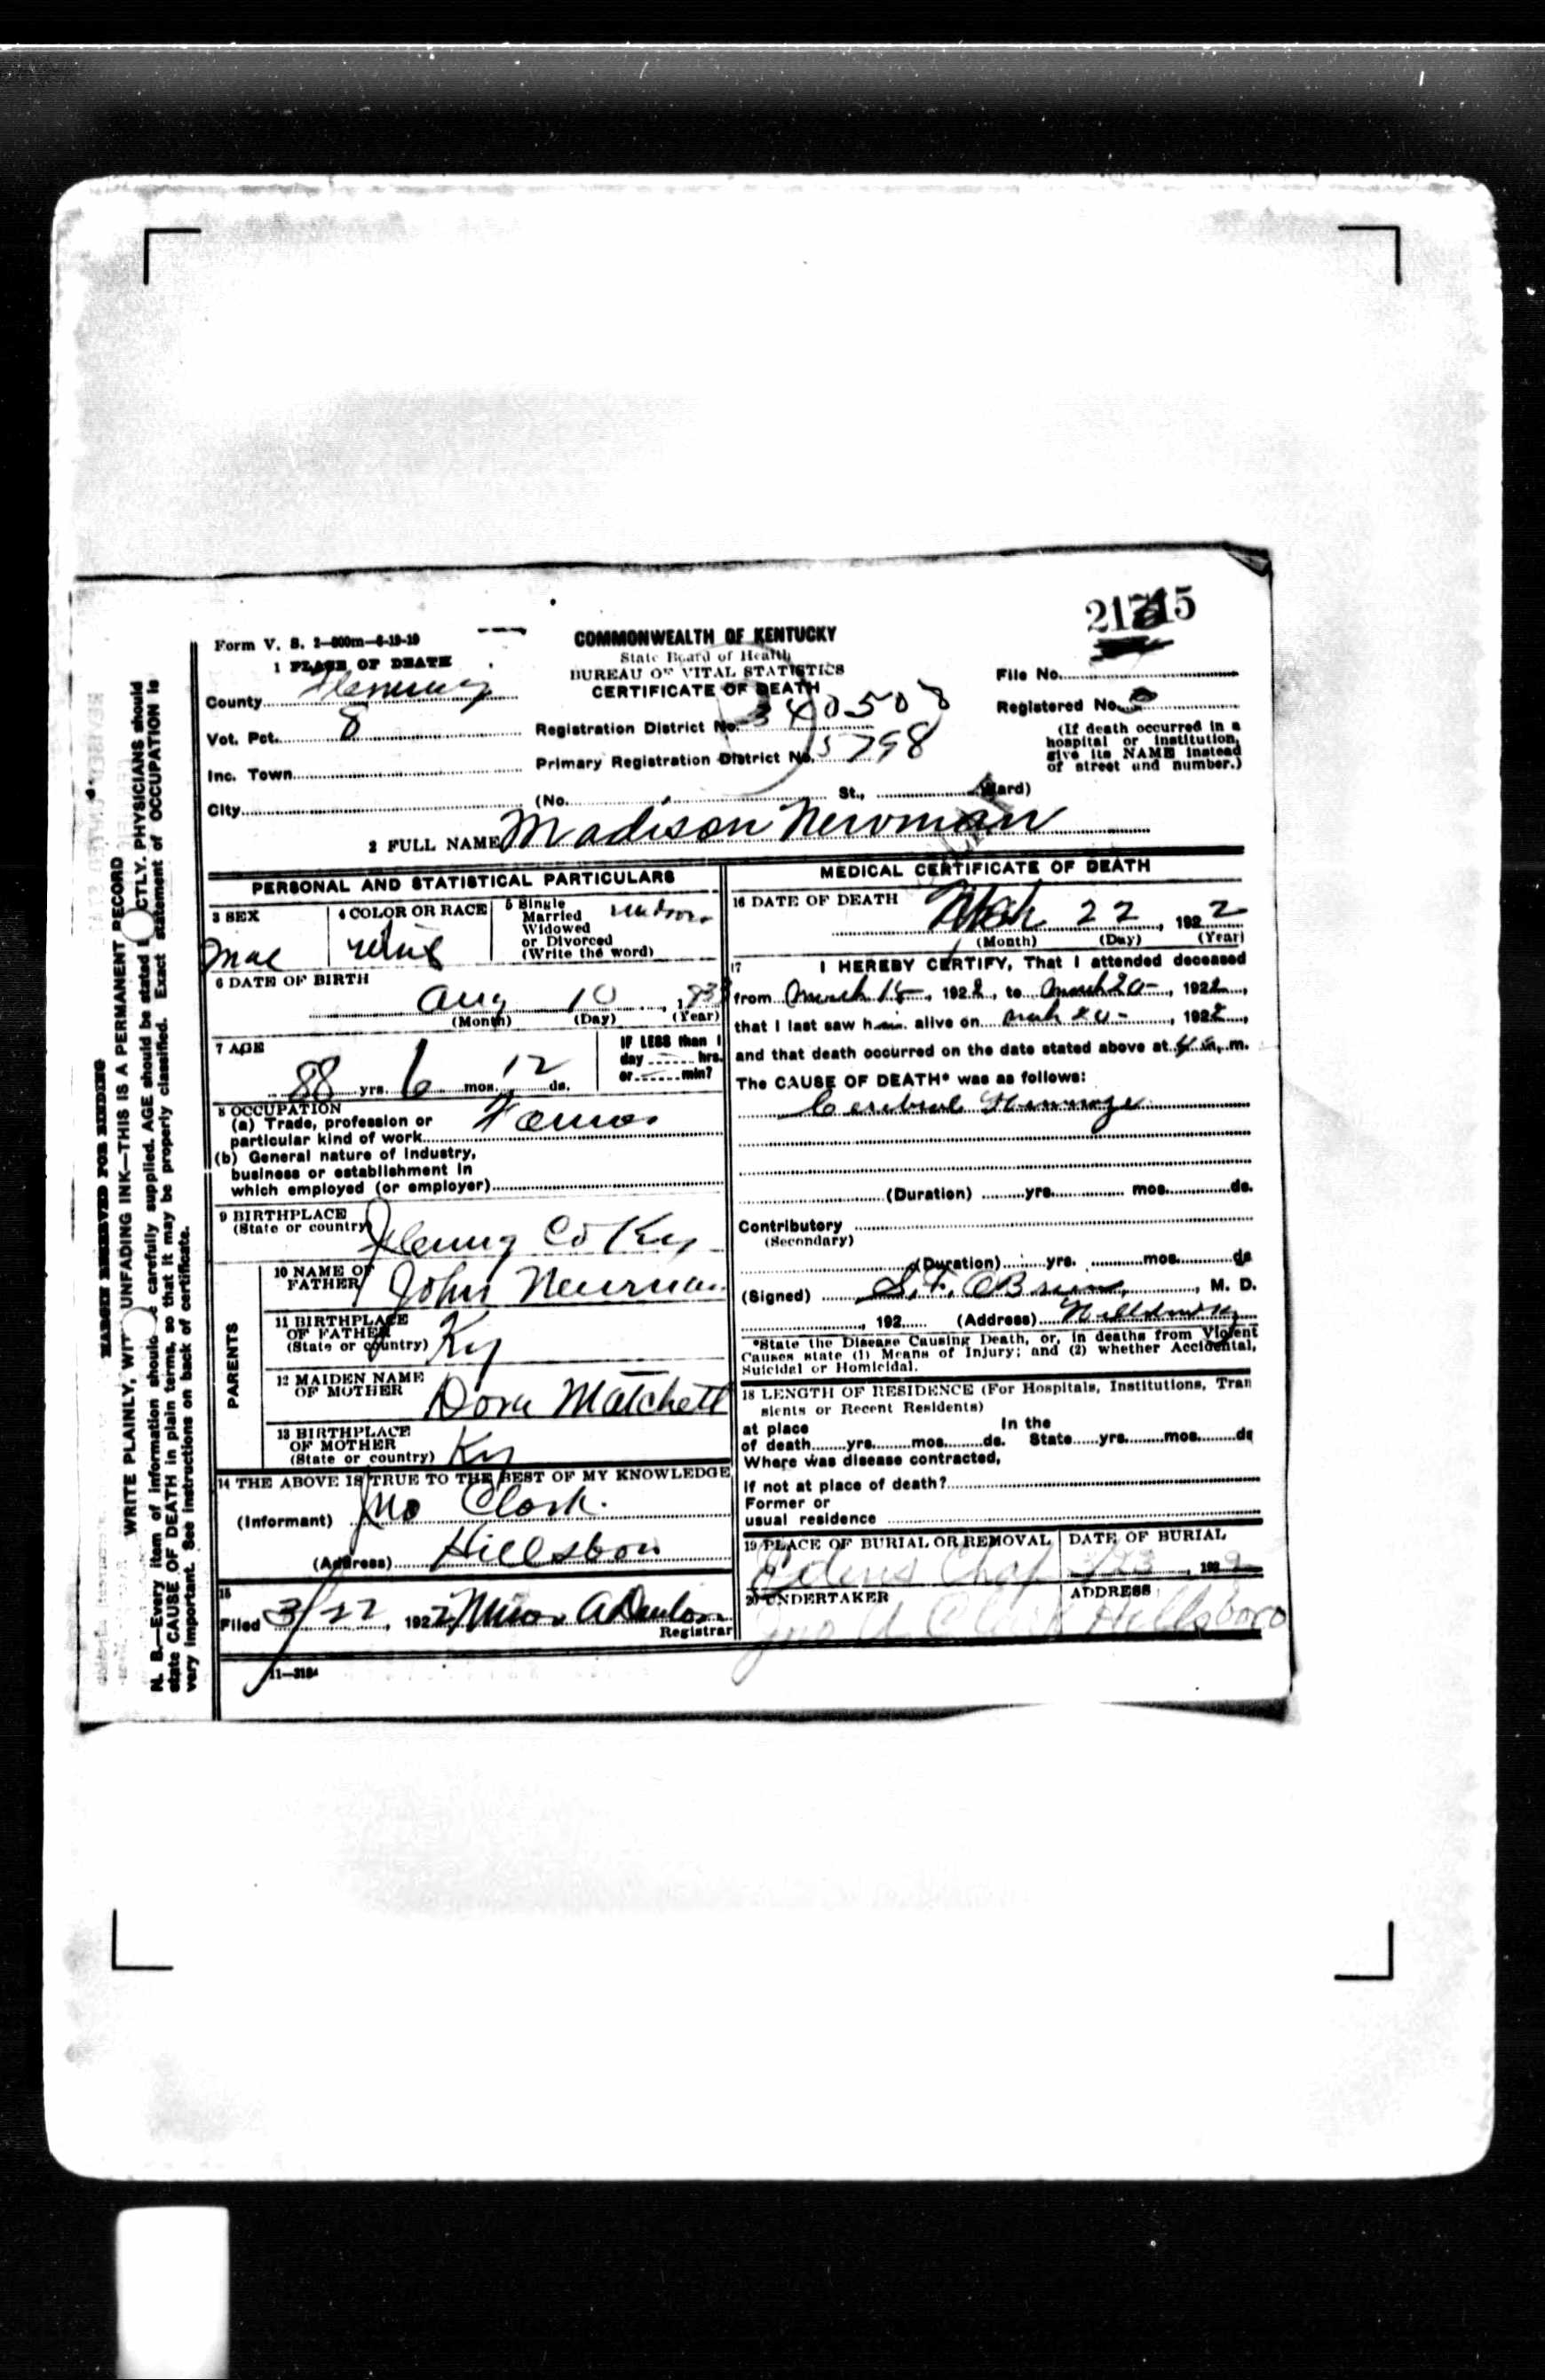 21715
Form V. S. 2-600m-6-19-19
COMMONWEALTH OF KENTUCKY
State Board of Health
BUREAU OF VITAL STATISTICS
CERTIFICATE OF DEATH
1 PLACE OF DEATH
County Fleming
Vot. Pct. 8
Inc. Town
City
Registration District No. 340508
Primary Registration District No. 5798
(No. St., Ward)
File No.
Registered No.
(If death occurred in a
hospital or institution,
give its NAME instead
of street and number.)
2 FULL NAME Madison Newman
PERSONAL AND STATISTICAL PARTICULARS
3 SEX
Mal
4 COLOR OR RACE
5 Single
Married
Widowed
or Divorced
(Write the word)
6 DATE OF BIRTH
Aug 10, 1833
(Month) (Day) (Year)
7 AGE
88 yrs. 6 mos. 12 ds.
IF LESS than 1
day hrs.
or min?
8 OCCUPATION
(a) Trade, profession or
particular kind of work
(b) General nature of industry,
business or establishment in
which employed (or employer)
9 BIRTHPLACE
(State or country) Co Ky
PARENTS
10 NAME OF
FATHER John Newman
11 BIRTHPLACE
OF FATHER
(State or country) Ky
12 MAIDEN NAME
OF MOTHER Dora Matchett
13 BIRTHPLACE
OF MOTHER
(State or country) Ky
14 THE ABOVE IS TRUE TO THE BEST OF MY KNOWLEDGE
(Informant) Jno Clark
(Address) Hillsboro
15
Filed 3/22, 1922 Registrar
11-3184
MEDICAL CERTIFICATE OF DEATH
16 DATE OF DEATH
Mch 22, 1922
(Month) (Day) (Year)
17 I HEREBY CERTIFY, That I attended deceased
from March 18, 1922, to March 20, 1922,
that I last saw him alive on March 20, 1922,
and that death occurred on the date stated above at 4 a. m.
The CAUSE OF DEATH* was as follows:
Cerebral
(Duration) yrs. mos. ds.
Contributory
(Secondary)
(Duration) yrs. mos. ds
(Signed) S. F. OBrien, M. D.
, 192 (Address)
*State the Disease Causing Death, or, in deaths from Violent
Causes state (1) Means of Injury; and (2) whether Accidental,
Suicidal or Homicidal.
18 LENGTH OF RESIDENCE (For Hospitals, Institutions, Tran
sients or Recent Residents)
at place In the
of death yrs. mos. ds. State yrs. mos. ds
Where was disease contracted,
if not at place of death?
Former or
usual residence
19 PLACE OF BURIAL OR REMOVAL
DATE OF BURIAL
Chap 3/23, 1922
20 UNDERTAKER
ADDRESS
Jno A Clark Hillsboro
MARGIN RESERVED FOR BINDING
WRITE PLAINLY, WITH UNFADING INK—THIS IS A PERMANENT RECORD
N. B.—Every item of information should be carefully supplied. AGE should be stated EXACTLY. PHYSICIANS should
state CAUSE OF DEATH in plain terms, so that it may be properly classified. Exact statement of OCCUPATION is
very important. See instructions on back of certificate.